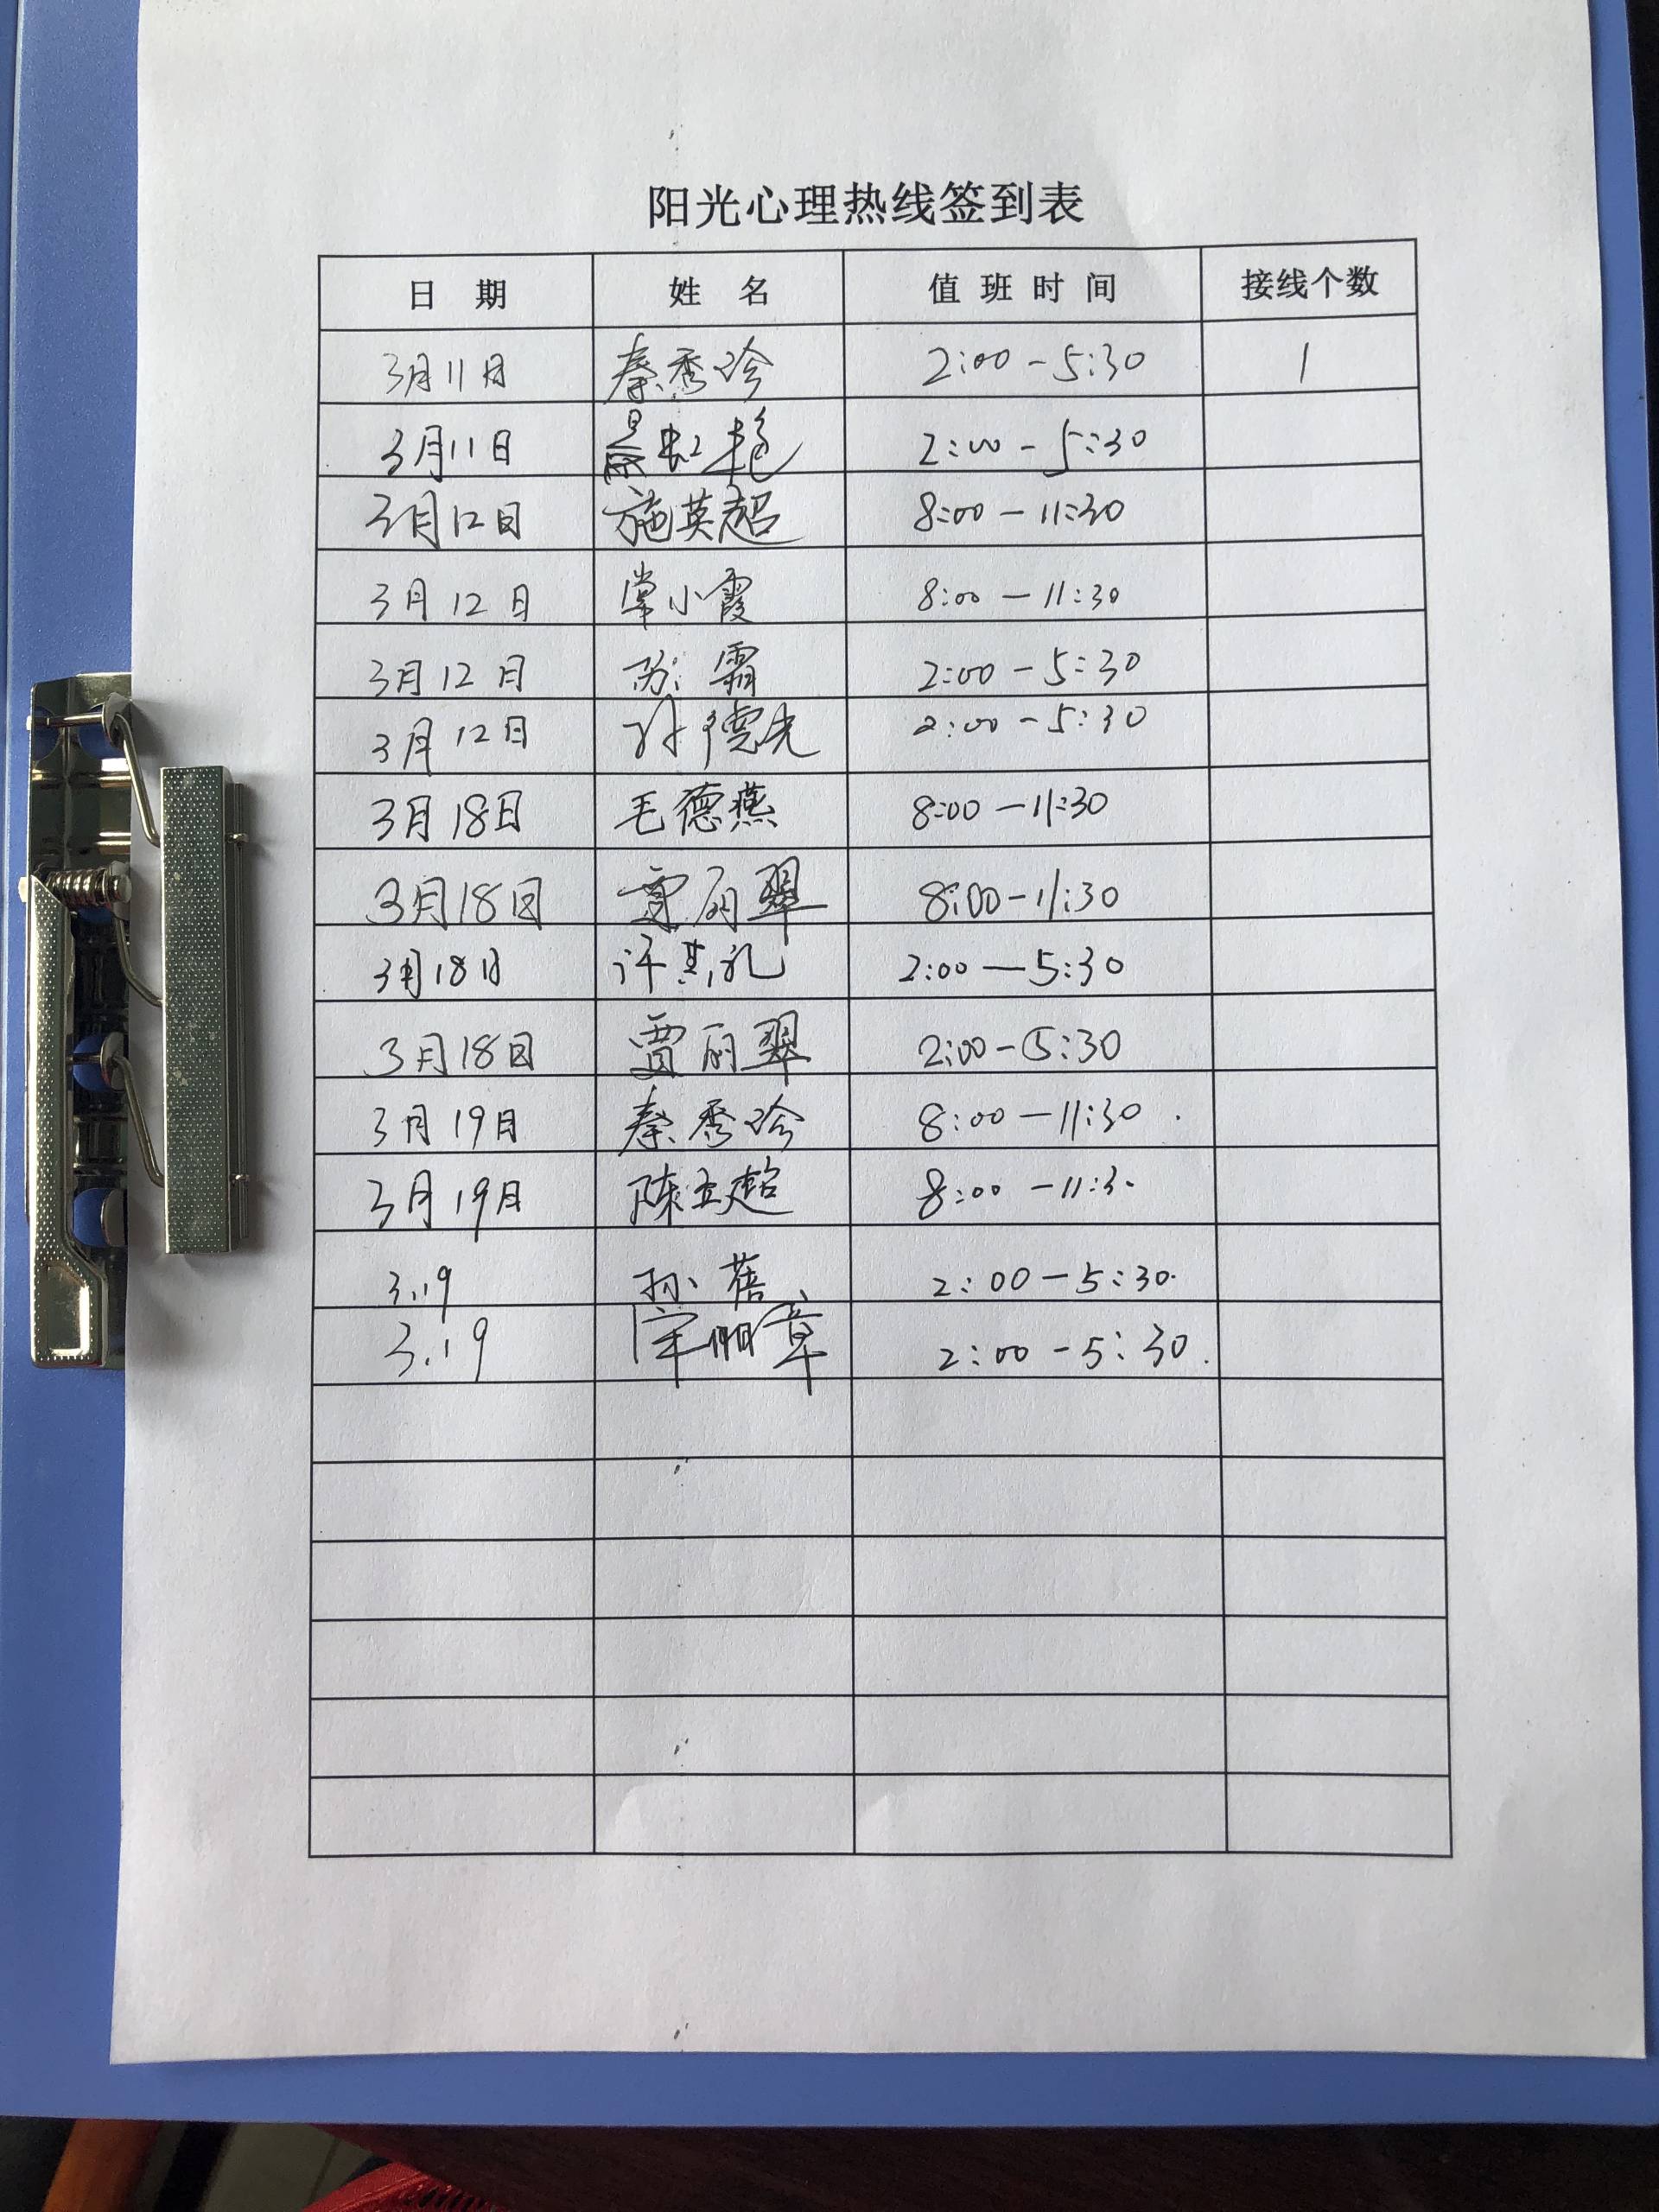 阳光心理热线签到表
日 期 姓 名 值 班 时 间 接线个数
3月11日 秦秀玲 2:00-5:30 1
3月11日 虹艳 2:00-5:30
3月12日 施英超 8:00-11:30
3月12日 常小霞 8:00-11:30
3月12日 霜 2:00-5:30
3月12日 孙德光 2:00-5:30
3月18日 毛德燕 8:00-11:30
3月18日 贾丽翠 8:00-11:30
3月18日 许其礼 2:00-5:30
3月18日 贾丽翠 2:00-5:30
3月19日 秦秀玲 8:00-11:30.
3月19日 陈立超 8:00-11:3.
3.19 孙蓓 2:00-5:30.
3.19 章 2:00-5:30.